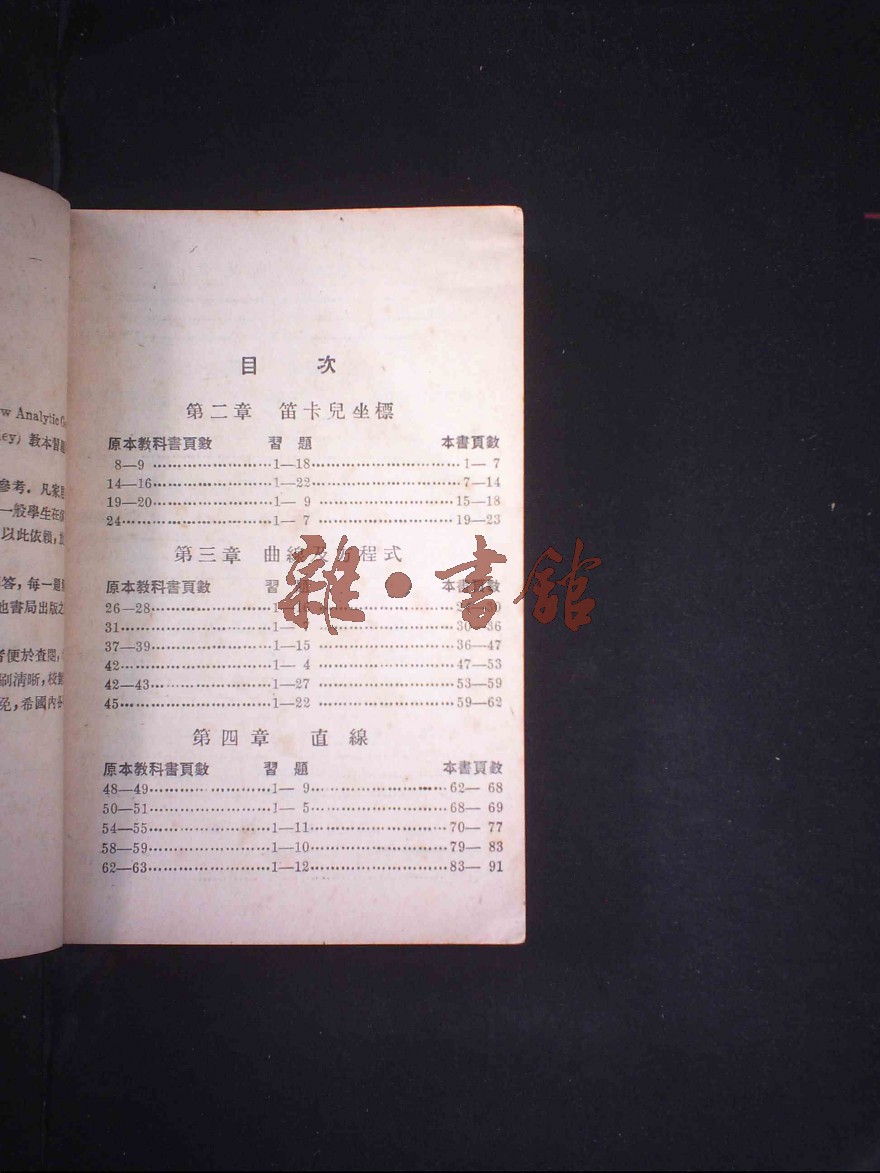 w Analytic
ey) 教本習
參考．凡家
一般學生在
以此依賴，
答，每一題
也書局出版之
者便於查閱，
刷清晰，校
免，希國內
目 次
第二章 笛卡兒坐標
原本教科書頁數 習 題 本書頁數
8—9 ························1—18························1— 7
14—16························1—22························7—14
19—20························1— 9 ························15—18
24························1— 7 ························19—23
第三章 曲線及方程式
原本教科書頁數 習 本書頁數
26—28························1—
31························1— 36
37—39························1—15 ························36—47
42························1— 4 ························47—53
42—43························1—27 ························53—59
45························1—22 ························59—62
雜·書館
第四章 直 線
原本教科書頁數 習 題 本書頁數
48—49························1— 9························62— 68
50—51························1— 5························68— 69
54—55························1—11························70— 77
58—59························1—10························79— 83
62—63························1—12························83— 91